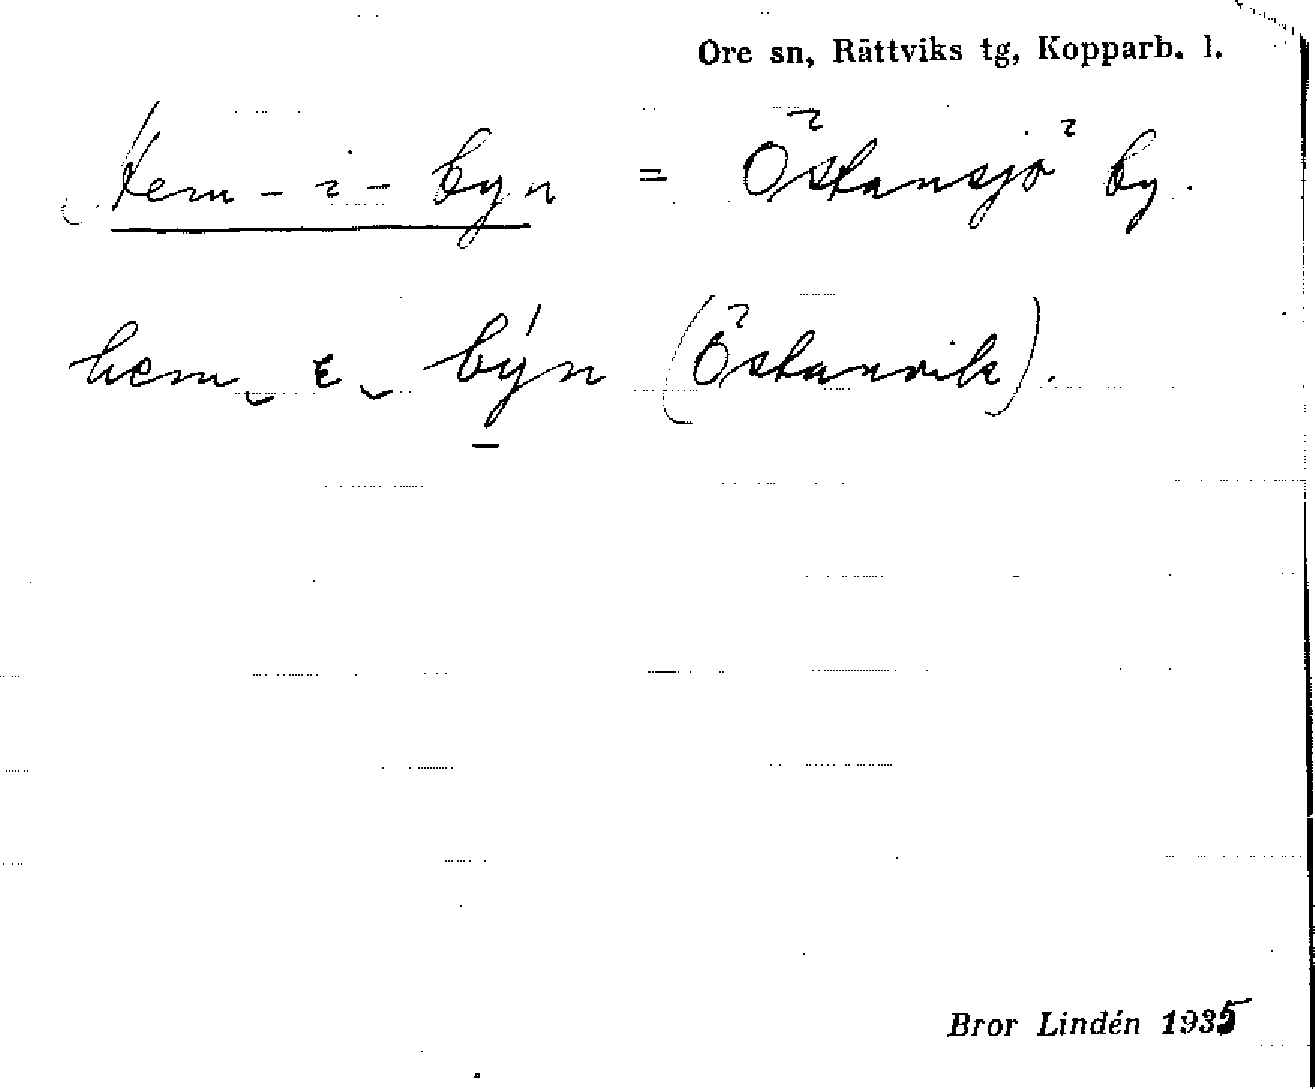 Ore sn, Rättviks tg, Kopparb. l.
Hem-i-byn = Östansjö by.
hem ɩ býn (Östanvik).
Bror Lindén 1935